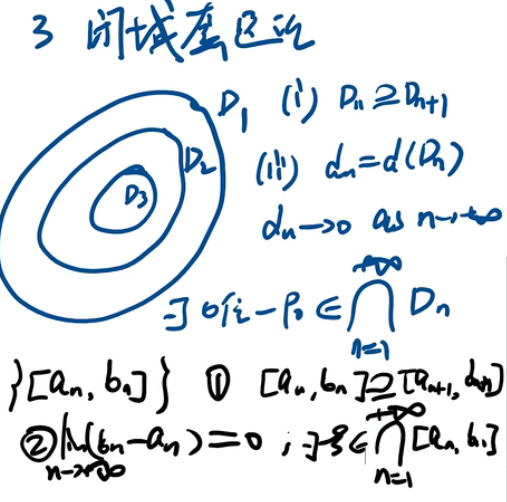 3 闭域套定理
D₁ (i) Dₙ ⊇ Dₙ₊₁
D₂ (ii) dₙ = d(Dₙ)
D₃
dₙ → 0 as n → +∞
∃ 唯一 P₀ ∈ ⋂ₙ₌₁^{+∞} Dₙ
{[aₙ, bₙ]} ① [aₙ, bₙ] ⊇ [aₙ₊₁, bₙ₊₁]
② lim_{n→+∞} (bₙ - aₙ) = 0 ; ∃ ξ ∈ ⋂ₙ₌₁^{+∞} [aₙ, bₙ]